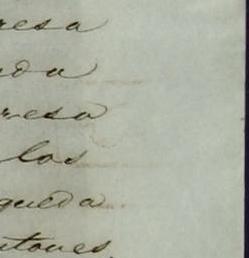 resa
da
reso
los
queda
utores